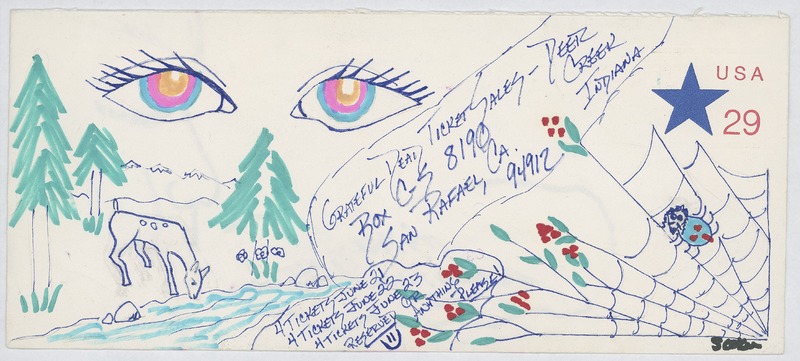 USA
29
GRATEFUL DEAD TICKET SALES - DEER
CREEK
INDIANA
BOX C-S 8190
SAN RAFAEL, CA.
94912
4 TICKETS-JUNE 21
4 TICKETS JUNE 22
4 TICKETS JUNE 23
RESERVED OR
ANYTHING
PLEASE!